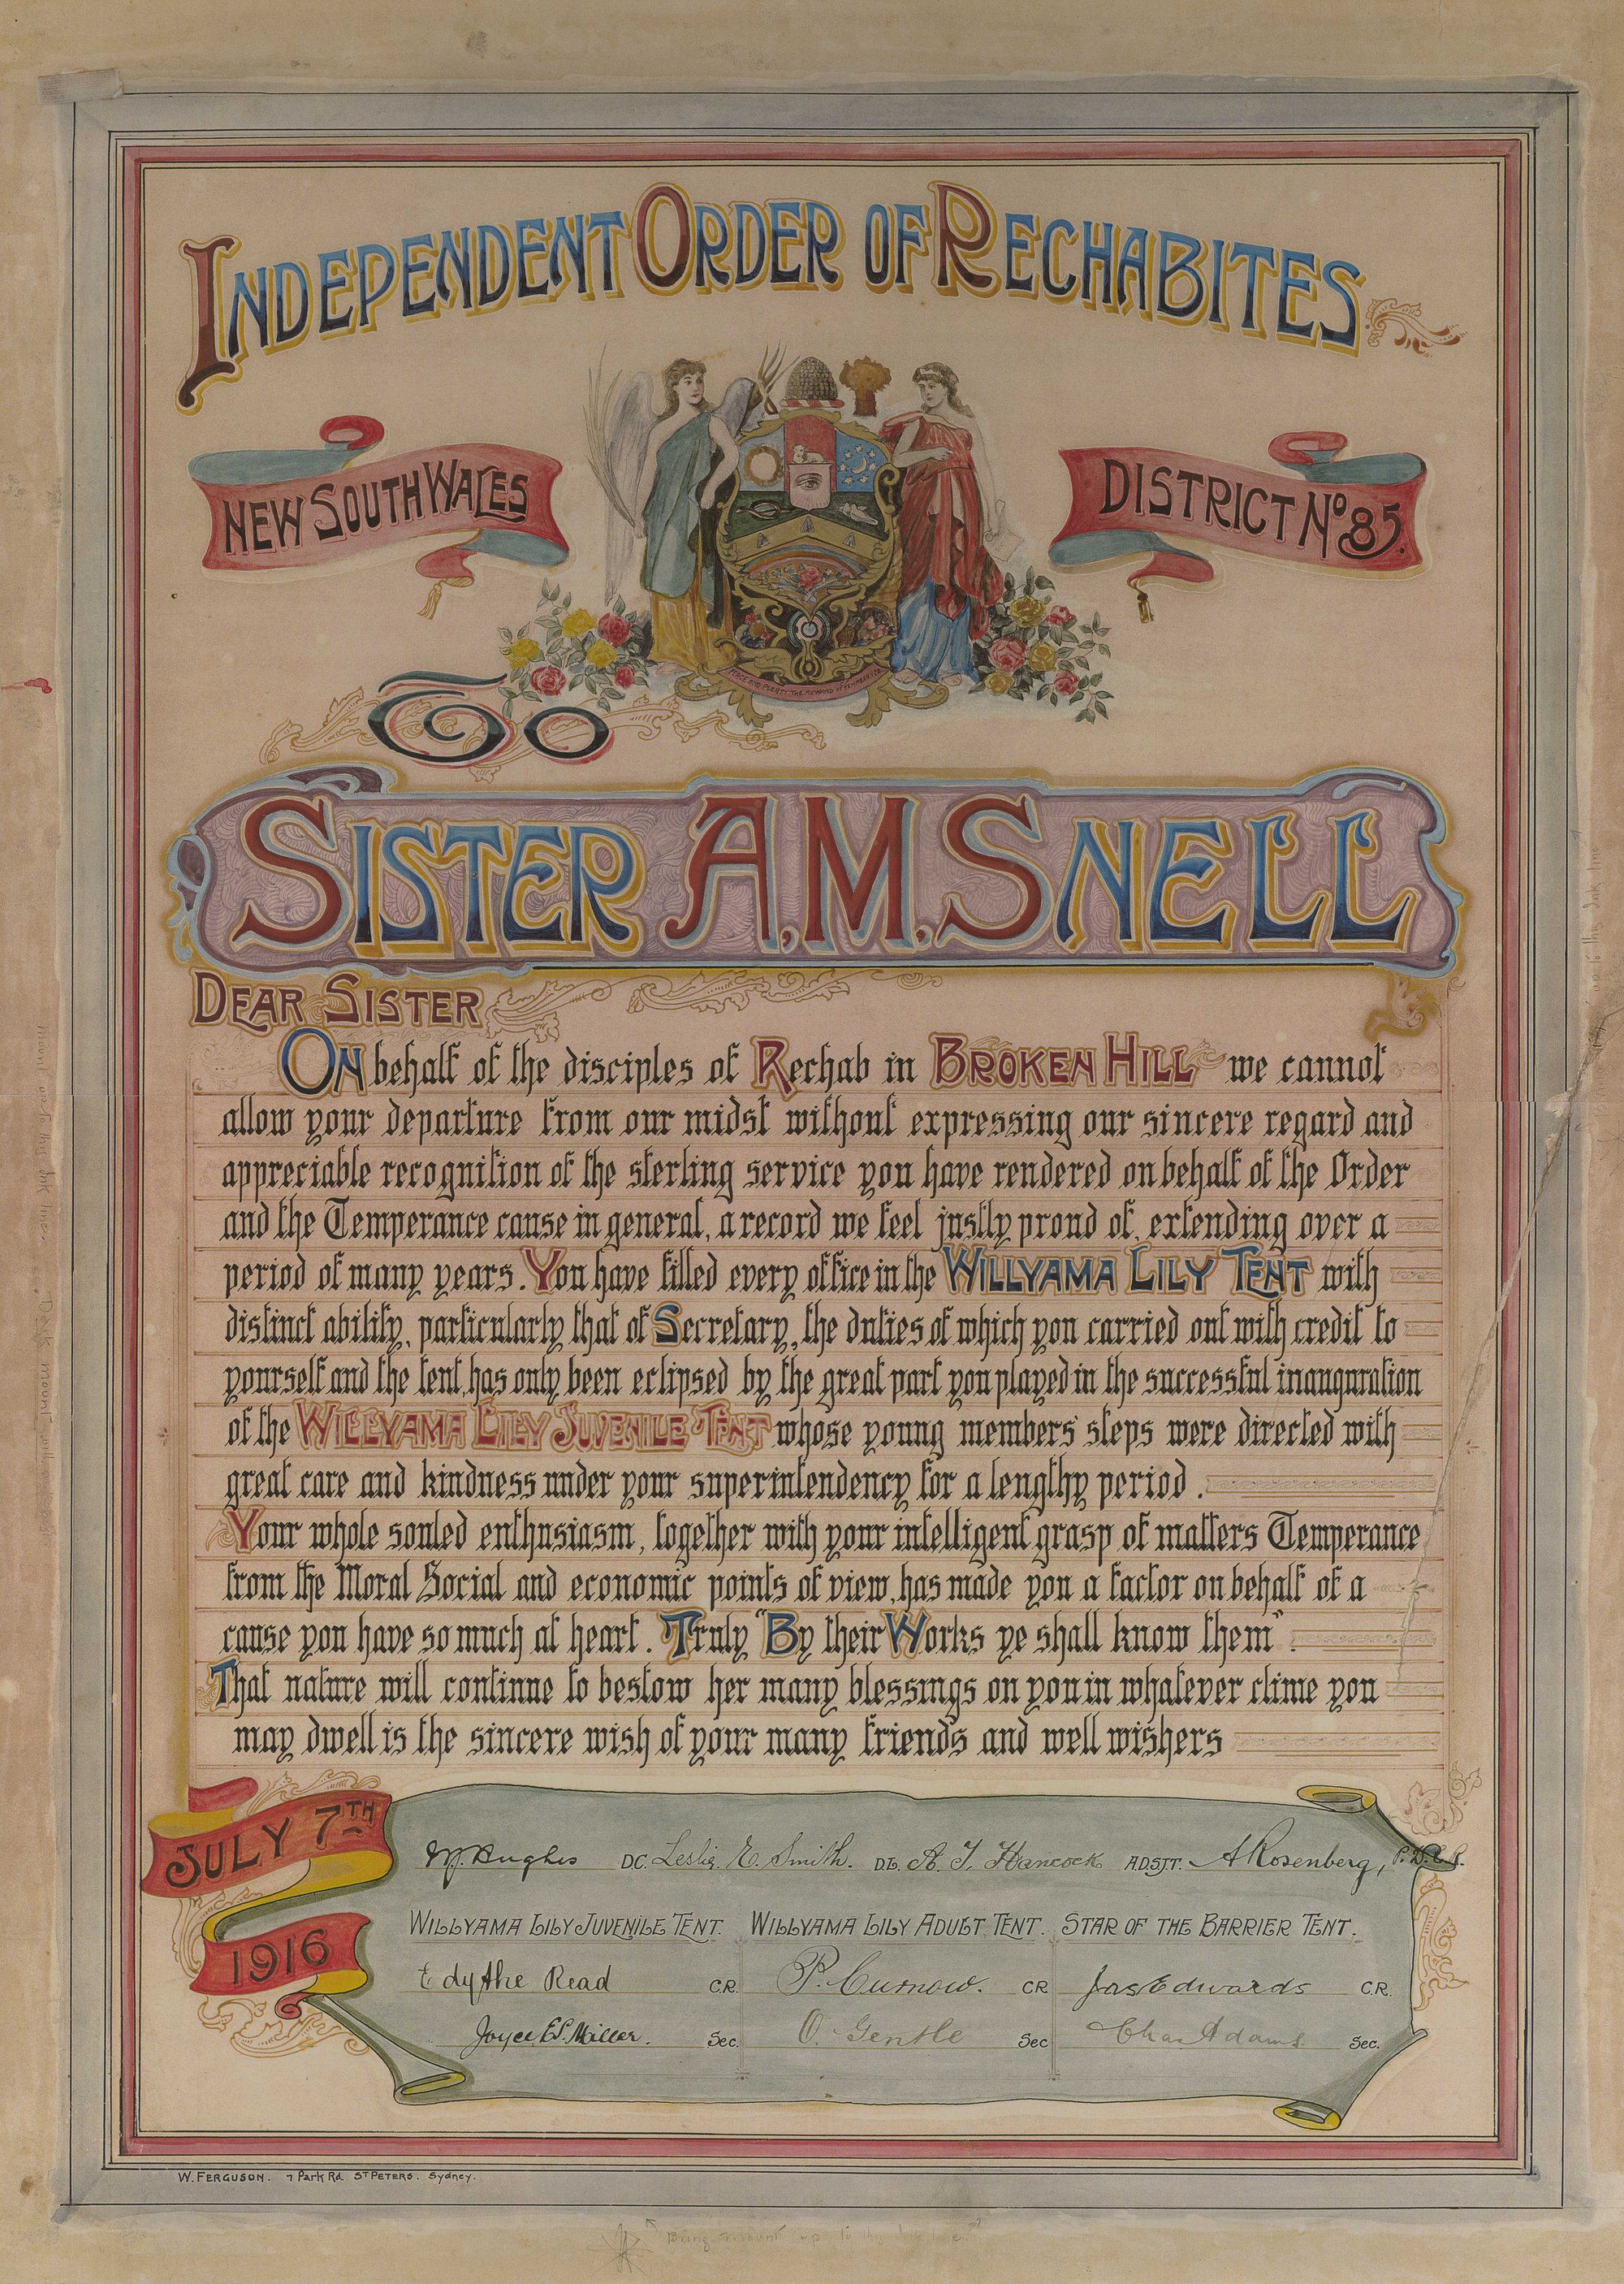 INDEPENDENT ORDER OF RECHABITES
NEW SOUTH WALES
DISTRICT No 85.
PEACE AND PLENTY THE REWARD OF TEMPERANCE
To
SISTER A.M. SNELL
DEAR SISTER
ON behalf of the disciples of Rechab in BROKEN HILL we cannot
allow your departure from our midst without expressing our sincere regard and
appreciable recognition of the sterling service you have rendered on behalf of the Order
and the Temperance cause in general, a record we feel justly proud of, extending over a
period of many years. You have filled every office in the WILLYAMA LILY TENT with
distinct ability, particularly that of Secretary, the duties of which you carried out with credit to
yourself and the tent, has only been eclipsed by the great part you played in the successful inauguration
of the WILLYAMA LILY JUVENILE TENT whose young members' steps were directed with
great care and kindness under your superintendency for a lengthy period.
Your whole souled enthusiasm, together with your intelligent grasp of matters Temperance
from the Moral Social and economic points of view, has made you a factor on behalf of a
cause you have so much at heart. Truly "By their Works ye shall know them"
That nature will continue to bestow her many blessings on you in whatever clime you
may dwell is the sincere wish of your many friends and well wishers
JULY 7TH
1916
W. Hughes D.C. Leslie E. Smith. D.L. A. T. Hancock A.D.S.J.T. A Rosenberg, P.D.C.R.
WILLYAMA LILY JUVENILE TENT. WILLYAMA LILY ADULT TENT. STAR OF THE BARRIER TENT.
Edythe Read C.R. P. Curnow. CR Jas Edwards C.R.
Joyce E. Miller. Sec. O. Gentle Sec Chas Adams. Sec.
W. FERGUSON. 7 Park Rd. ST PETERS. Sydney.
Bring mount up to this